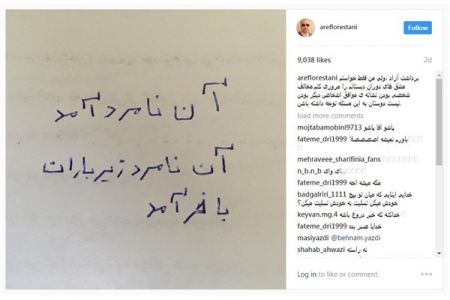 آن نامرد آمد
آن نامرد زیر باران
با خر آمد
areflorestani
Follow
9,038 likes
2d
areflorestani برداشت آزاد .ولی من فقط خواستم
مشق های دوران دبستانم را مروری کنم.مخالف
شخصی بودن نشانه ی موافق اشخاص دیگر بودن
نیست دوستان به این مسئله توجه داشته باش
load more comments
mojtabamobini9713 پاشو آقا پاشو
fateme_dri1999 باورم نمیشه اصصصصلا
mehraveee_sharifinia_fans
n_b.n_b وای وای...
fateme_dri1999 مگه میشه اخه
badgalriri_1111 خدایی اینایی که میان تو پیج
خودش میگن تسلیت به خودش تسلیت میگن؟
keyvan.mg.4 خداکنه که خبر دروغ باشه
fateme_dri1999 خدایا صبر بده
masiyazdi @behnam.yazdi
shahab_ahwazi نه راسته
Log in to like or comment.